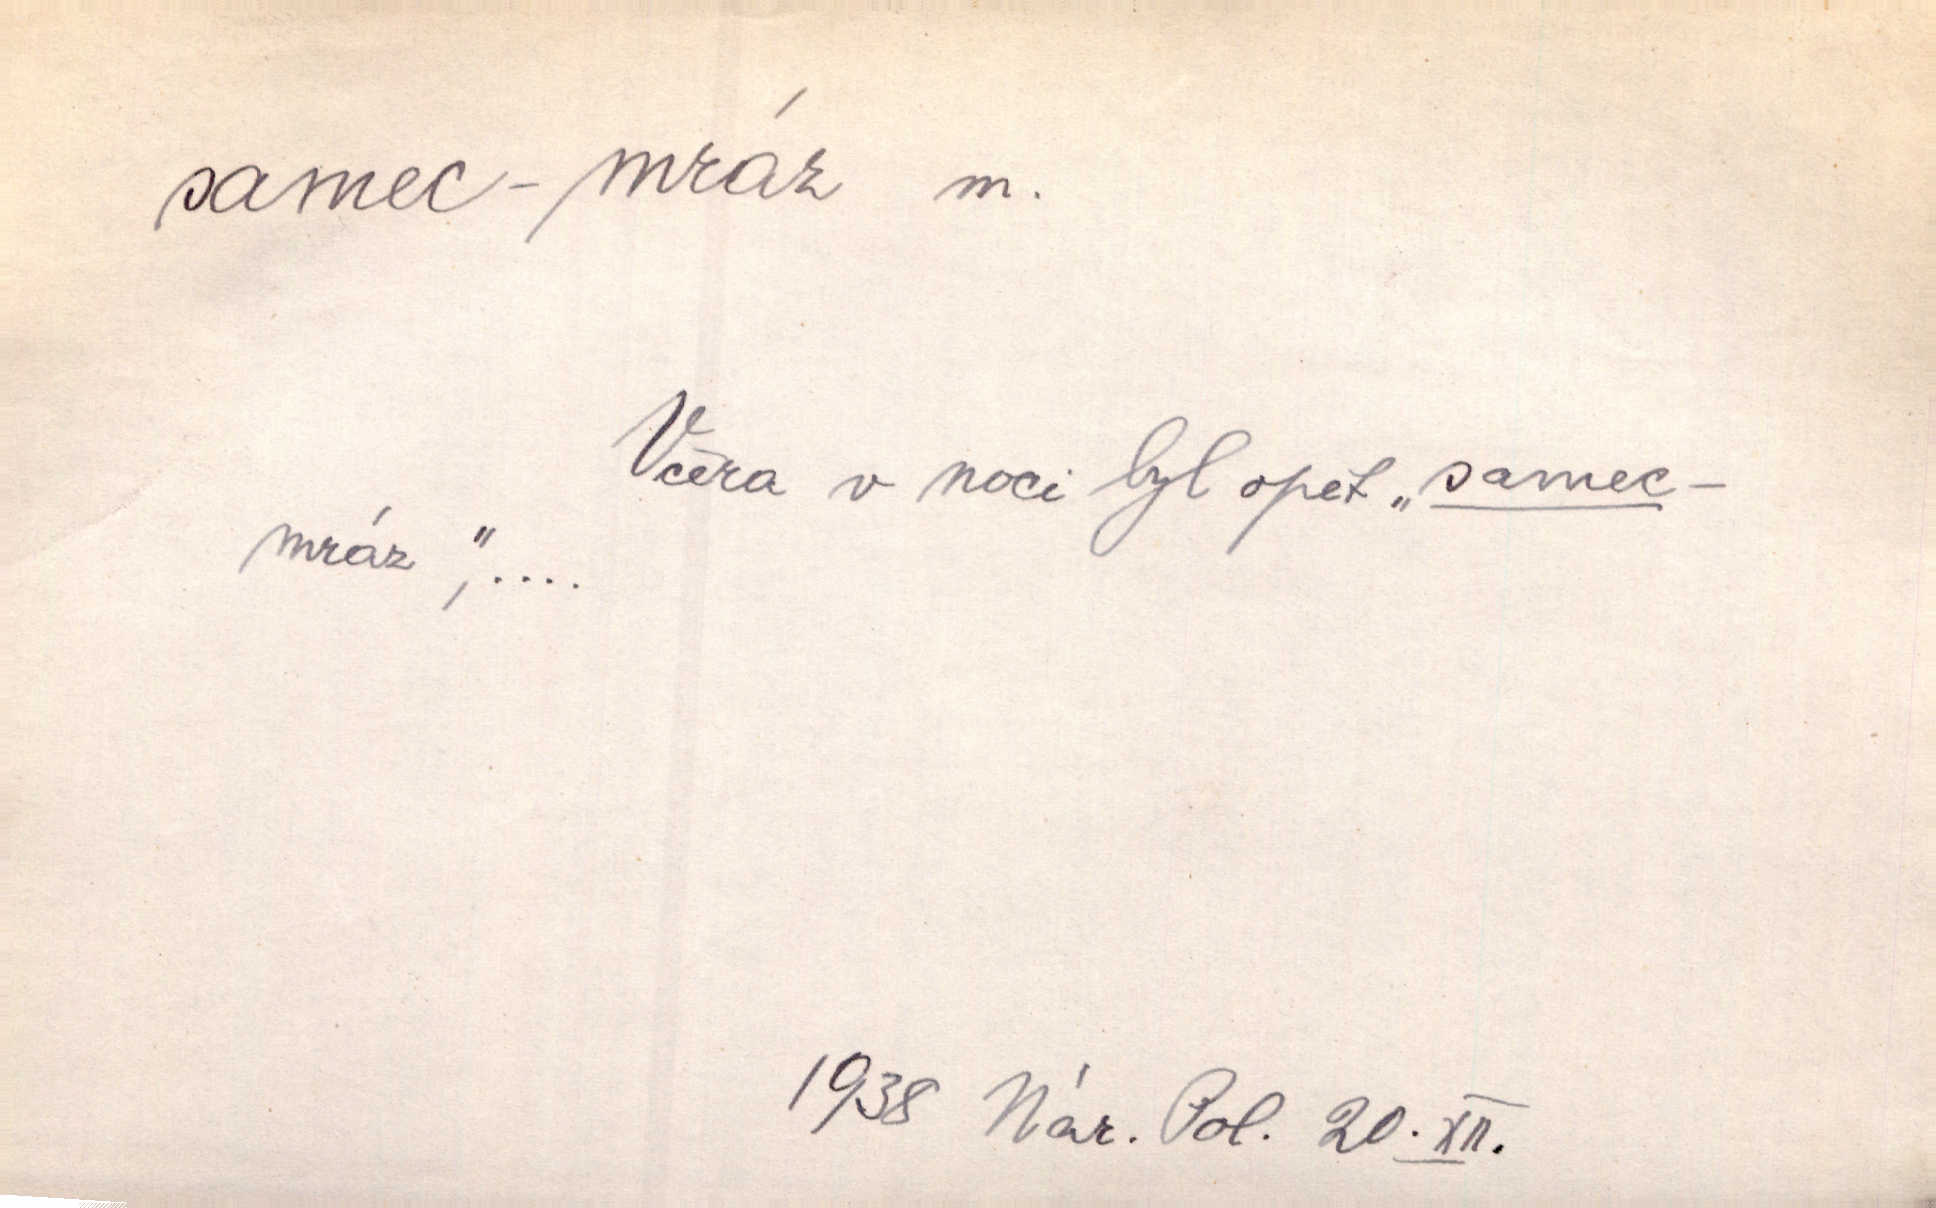 samec-mráz m.
Včera v noci byl opět „samec-
mráz“,....
1938 Nár. Pol. 20. XII.